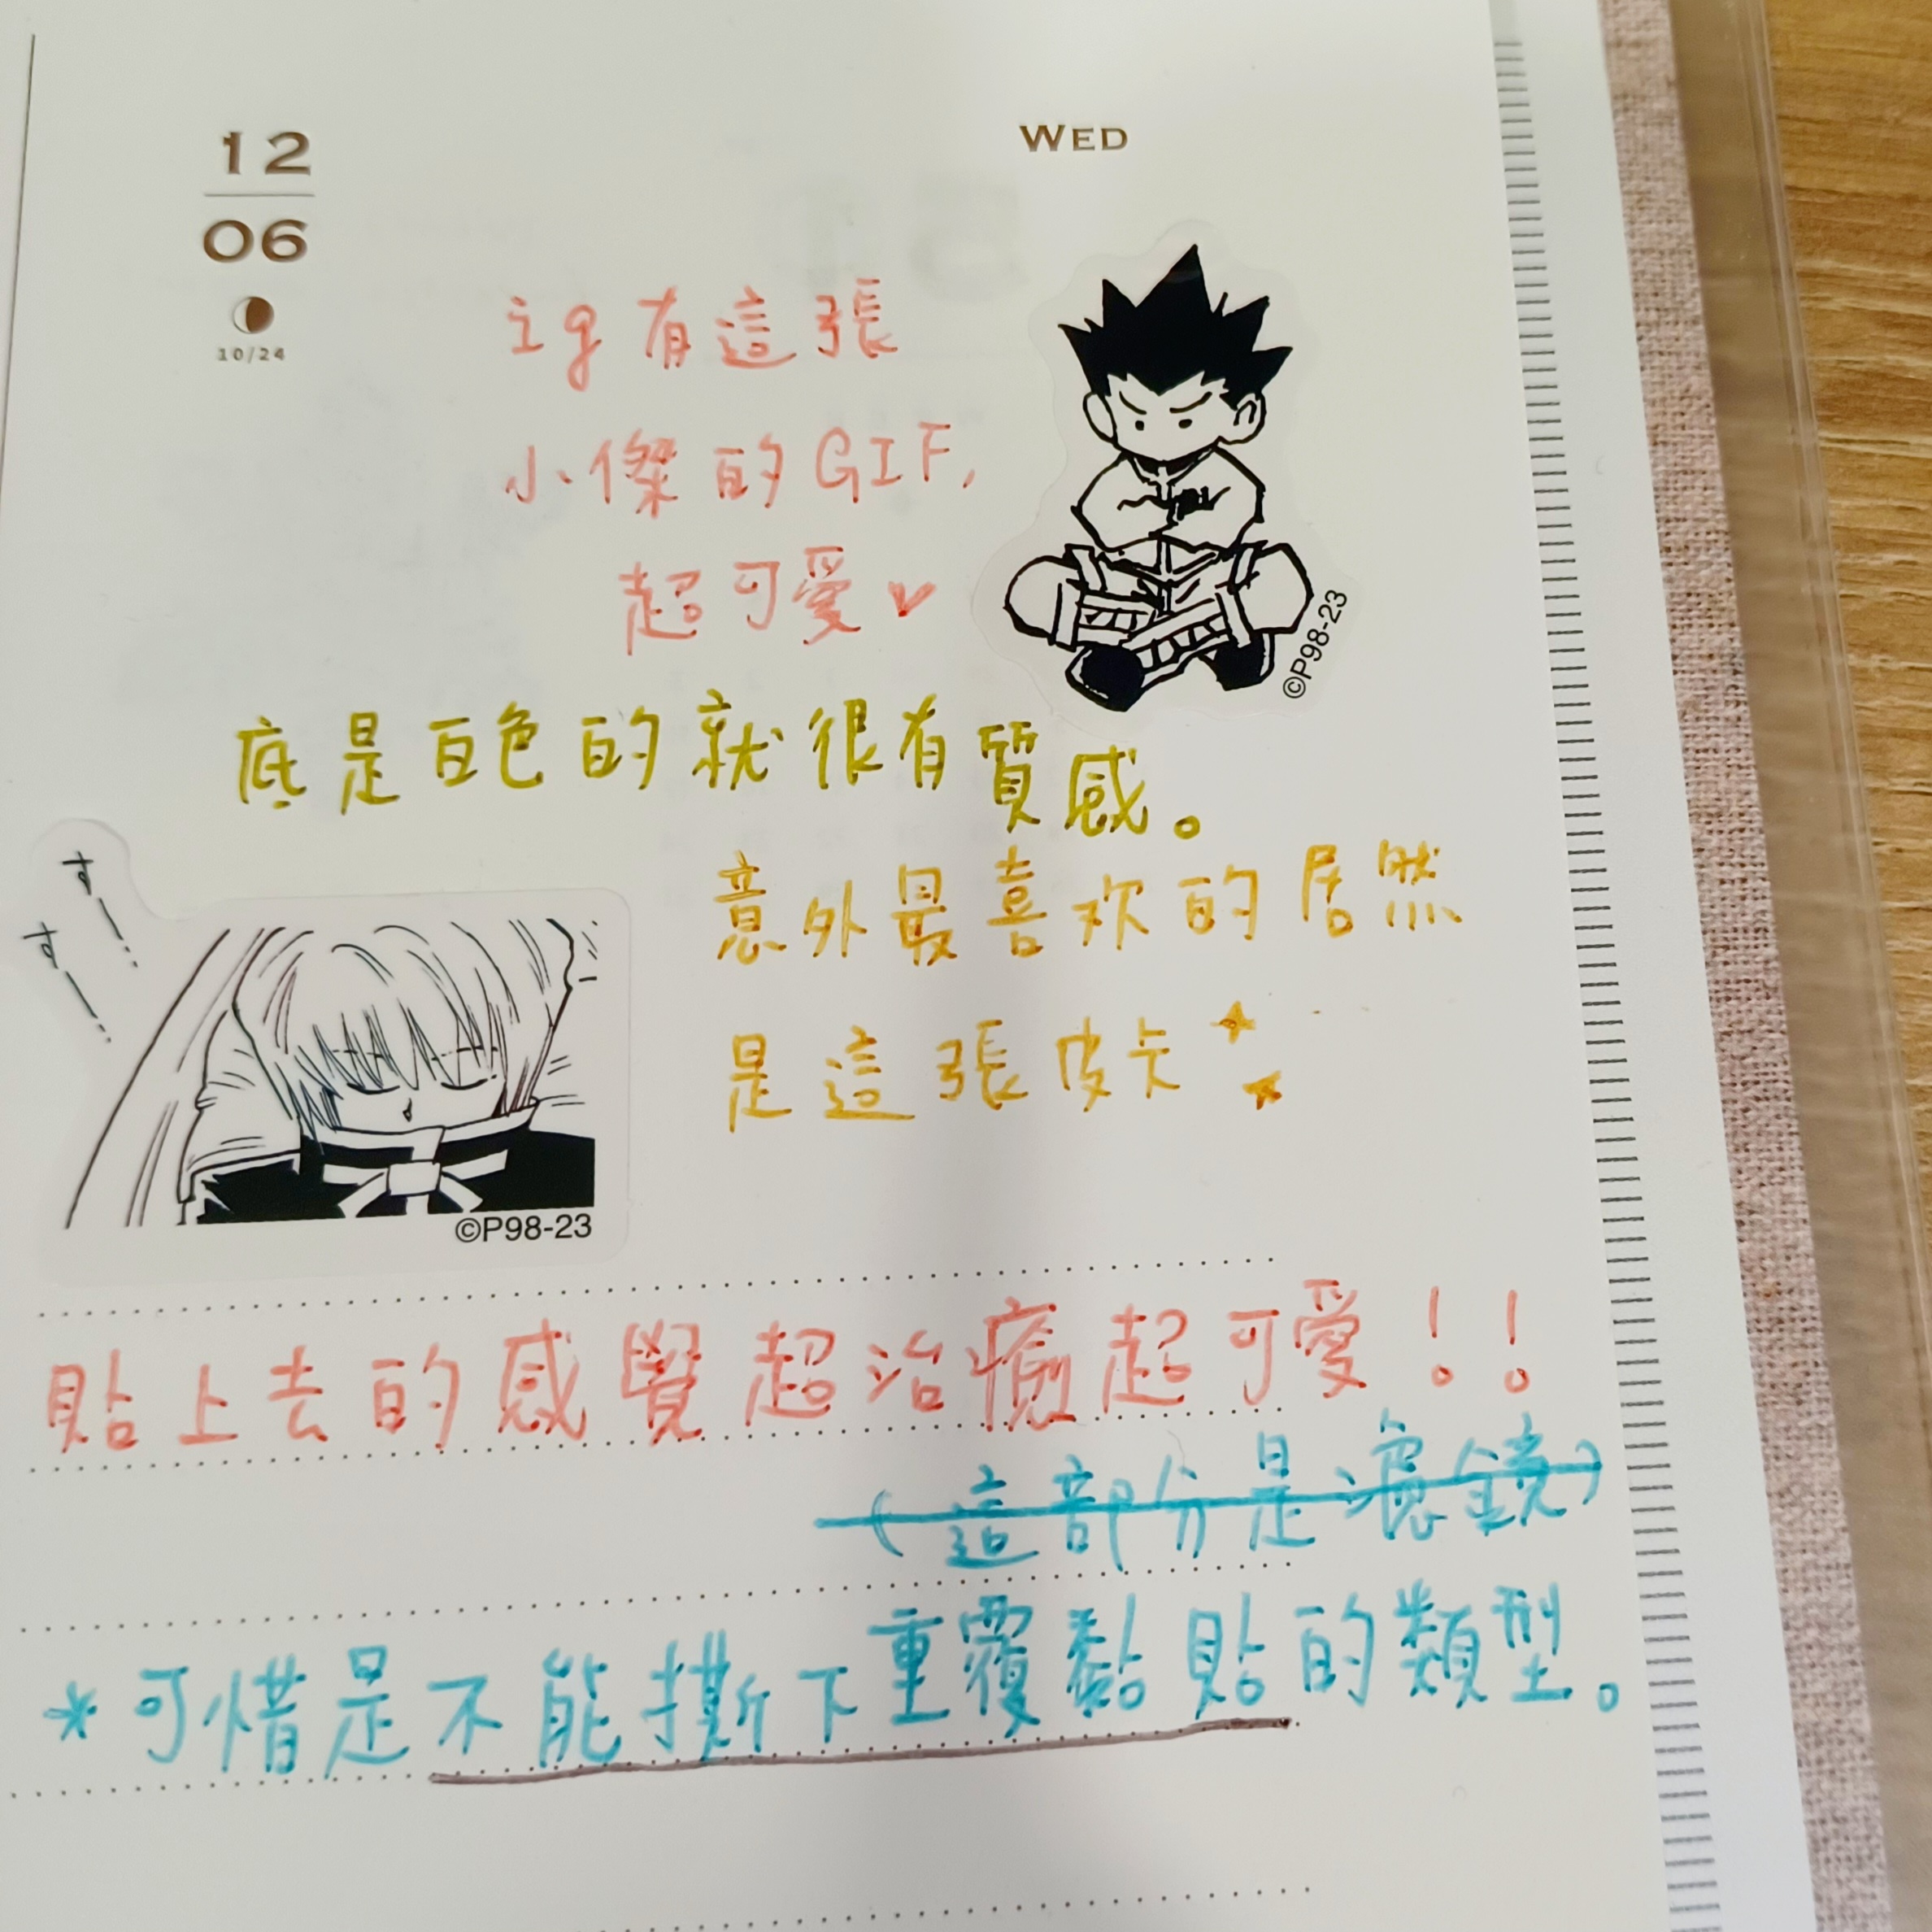 12
WED
06
10/24
ig有這張
小傑的GIF,
超可愛♥
©P98-23
底是白色的就很有質感。
すー、
すー、
意外最喜歡的居然
是這張皮卡
©P98-23
貼上去的感覺超治癒超可愛!!
(這部分是濾鏡)
*可惜是不能撕下重覆黏貼的類型。